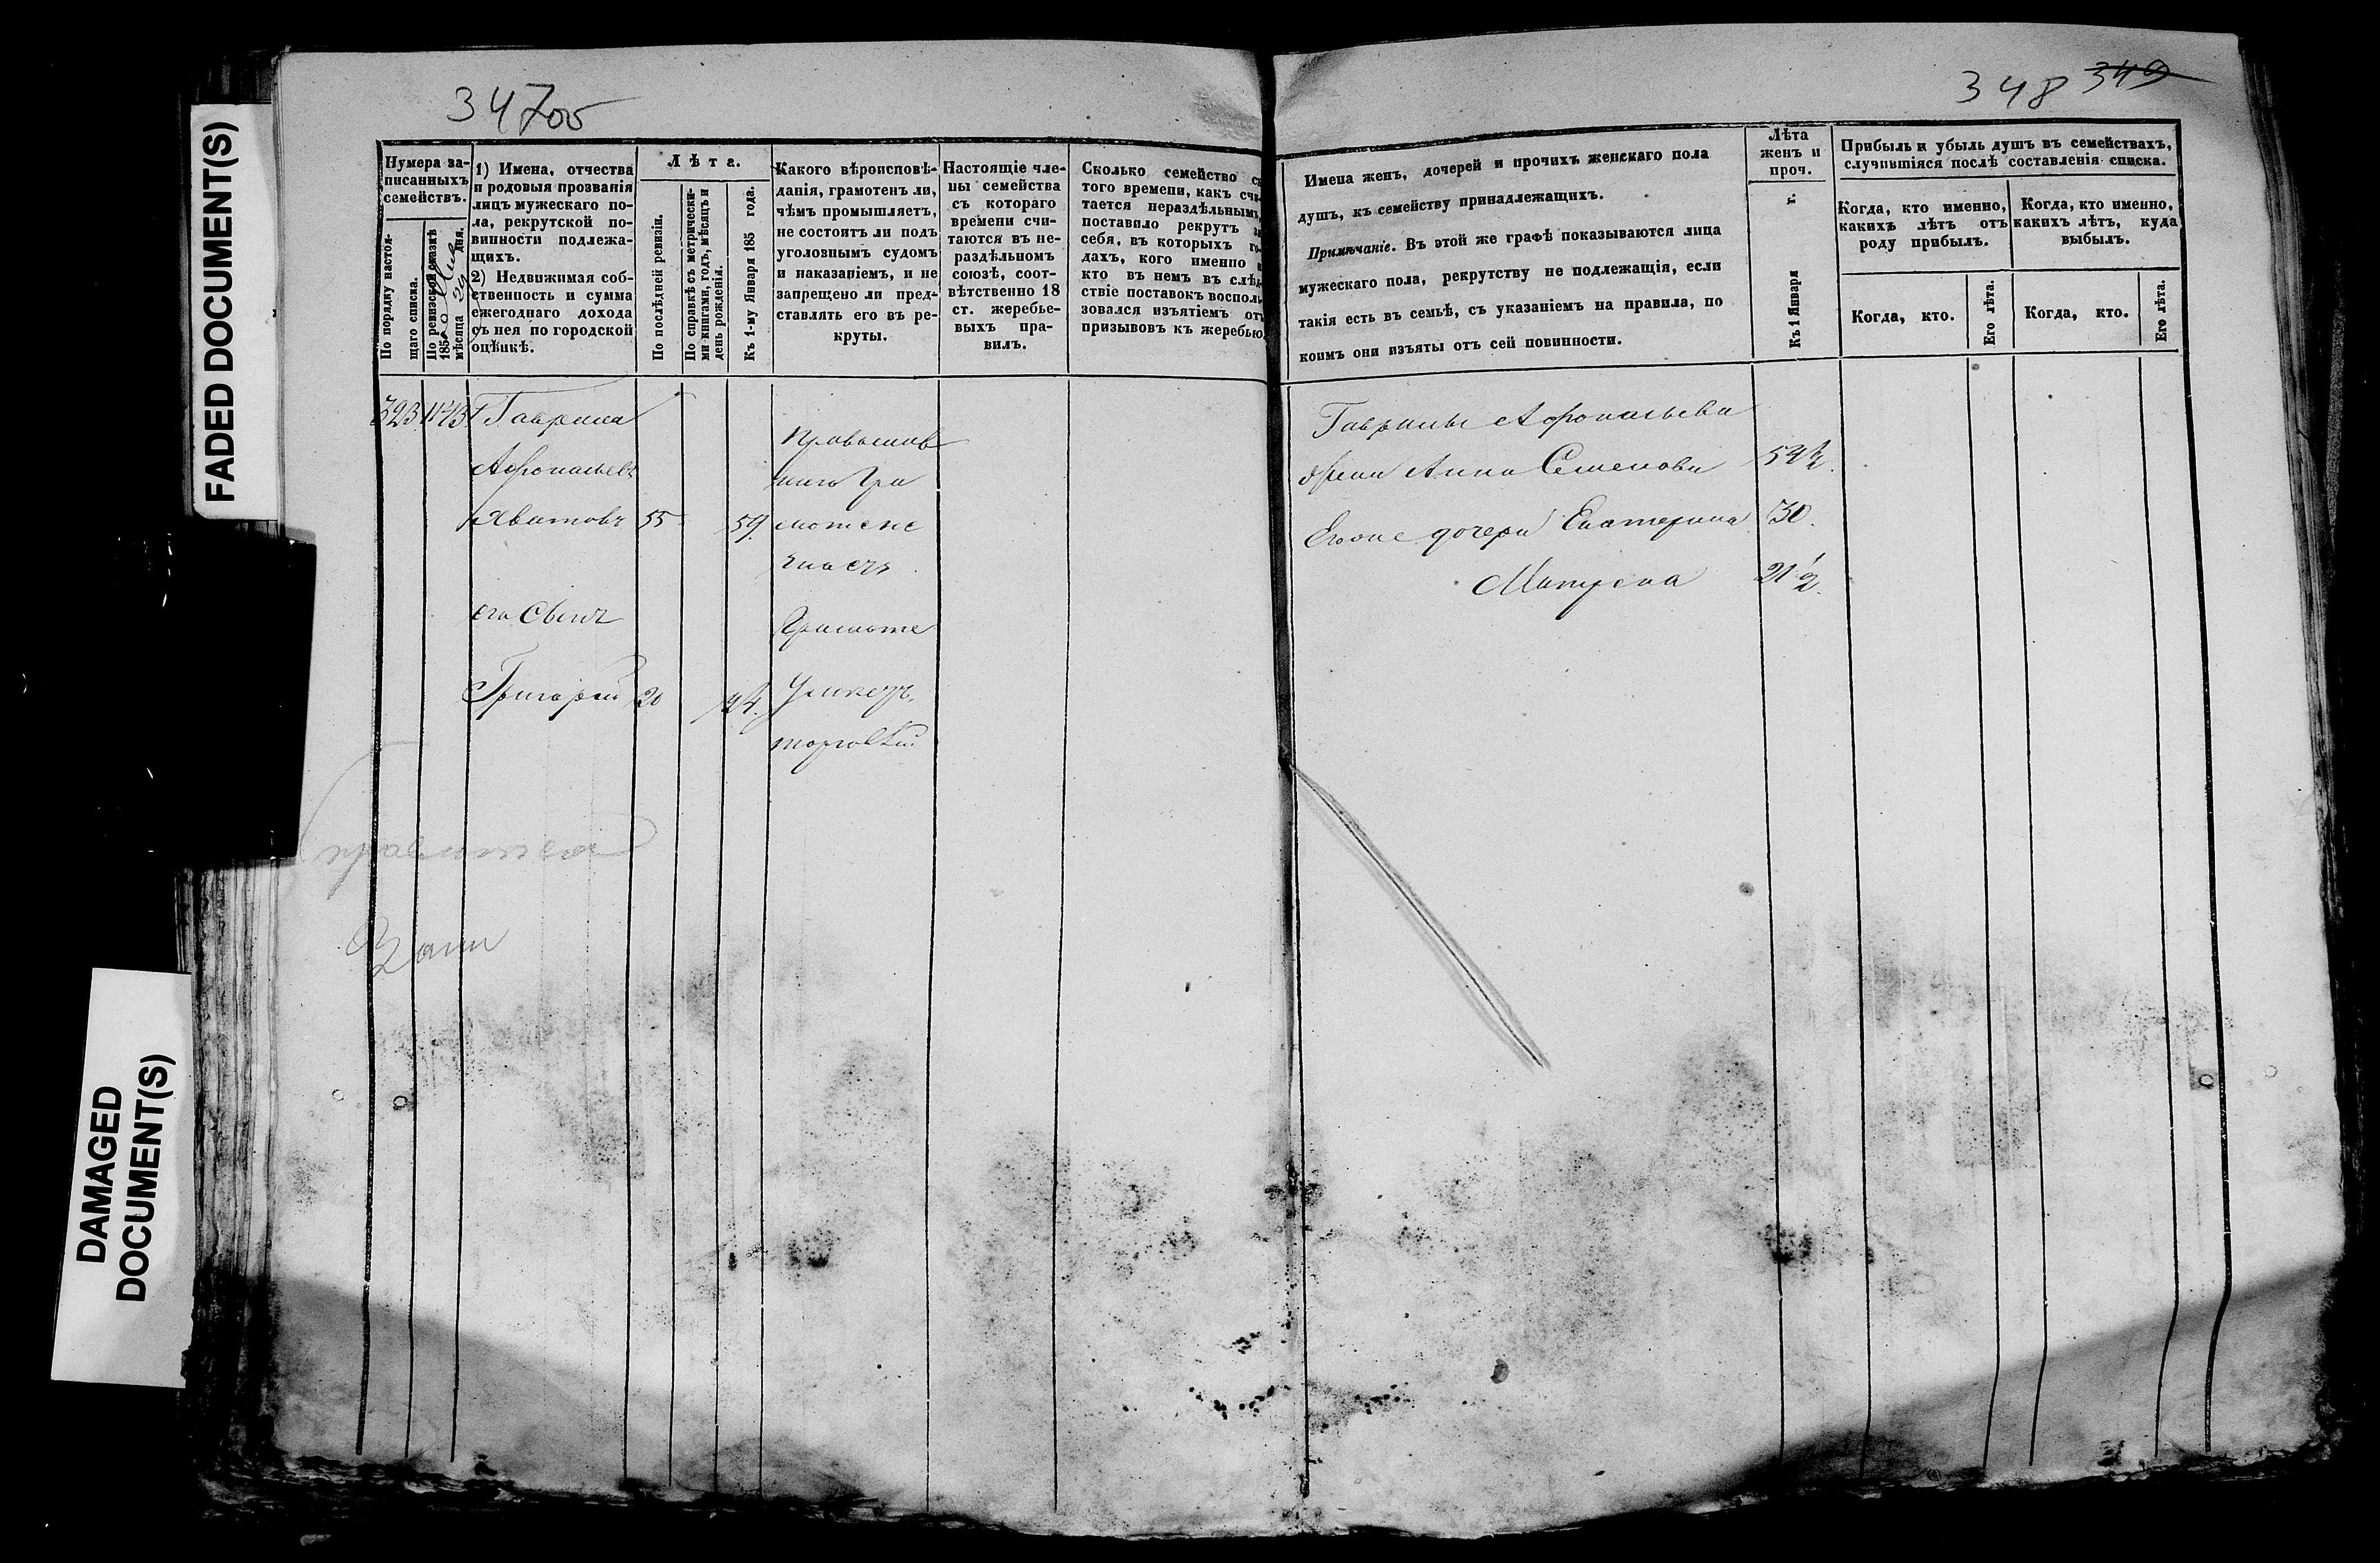 FADED DOCUMENT(S)
DAMAGED
DOCUMENT(S)
347об
Нумера за-
писанныхъ
семействъ.
По порядку настоя-
щаго списка.
По ревизской сказкѣ
185
мѣсяца 29 дня.
1) Имена, отчества
и родовыя прозванія
лицъ мужескаго по-
ла, рекрутской по-
винности подлежа-
щихъ.
2) Недвижимая соб-
ственность и сумма
ежегоднаго дохода
съ нея по городской
оцѣнкѣ.
Лѣта.
По послѣдней ревизіи.
По справкѣ съ метрически-
ми книгами, годъ, мѣсяцъ и
день рожденія.
Къ 1-му Января 185 года.
Какого вѣроисповѣ-
данія, грамотенъ ли,
чѣмъ промышляетъ,
не состоитъ ли подъ
уголовнымъ судомъ
и наказаніемъ, и не
запрещено ли пред-
ставлять его въ ре-
круты.
Настоящіе чле-
ны семейства
съ котораго
времени счи-
таются въ не-
раздѣльномъ
союзѣ, соот-
вѣтственно 18
ст. жеребье-
выхъ пра-
вилъ.
Сколько семейство съ
того времени, какъ счи-
тается нераздѣльнымъ,
поставило рекрутъ за
себя, въ которыхъ го-
дахъ, кого именно и
кто въ немъ въ слѣд-
ствіе поставокъ восполь-
зовался изъятіемъ отъ
призывовъ къ жеребью.
323 1143 Гаврила
Афонасьевъ
Яватовъ 55 59
Православ
наго Гра
моте не
знаетъ
его Сынъ
Григорей 20 24
Грамоте
Умеетъ
торговлей
348 349
Имена женъ, дочерей и прочихъ женскаго пола
душъ, къ семейству принадлежащихъ.
Примѣчаніе. Въ этой же графѣ показываются лица
мужескаго пола, рекрутству не подлежащія, если
такія есть въ семьѣ, съ указаніемъ на правила, по
коимъ они изъяты отъ сей повинности.
Лѣта
женъ и
проч.
Къ 1 Января г.
Прибыль и убыль душъ въ семействахъ,
случившіяся послѣ составленія списка.
Когда, кто именно,
какихъ лѣтъ отъ
роду прибылъ.
Когда, кто именно,
какихъ лѣтъ, куда
выбылъ.
Когда, кто.
Его лѣта.
Когда, кто.
Его лѣта.
Гаврилы Афонасьева
жена Анна Семенова 54½
Ево же дочери Екатерина 30.
Матрена 21½